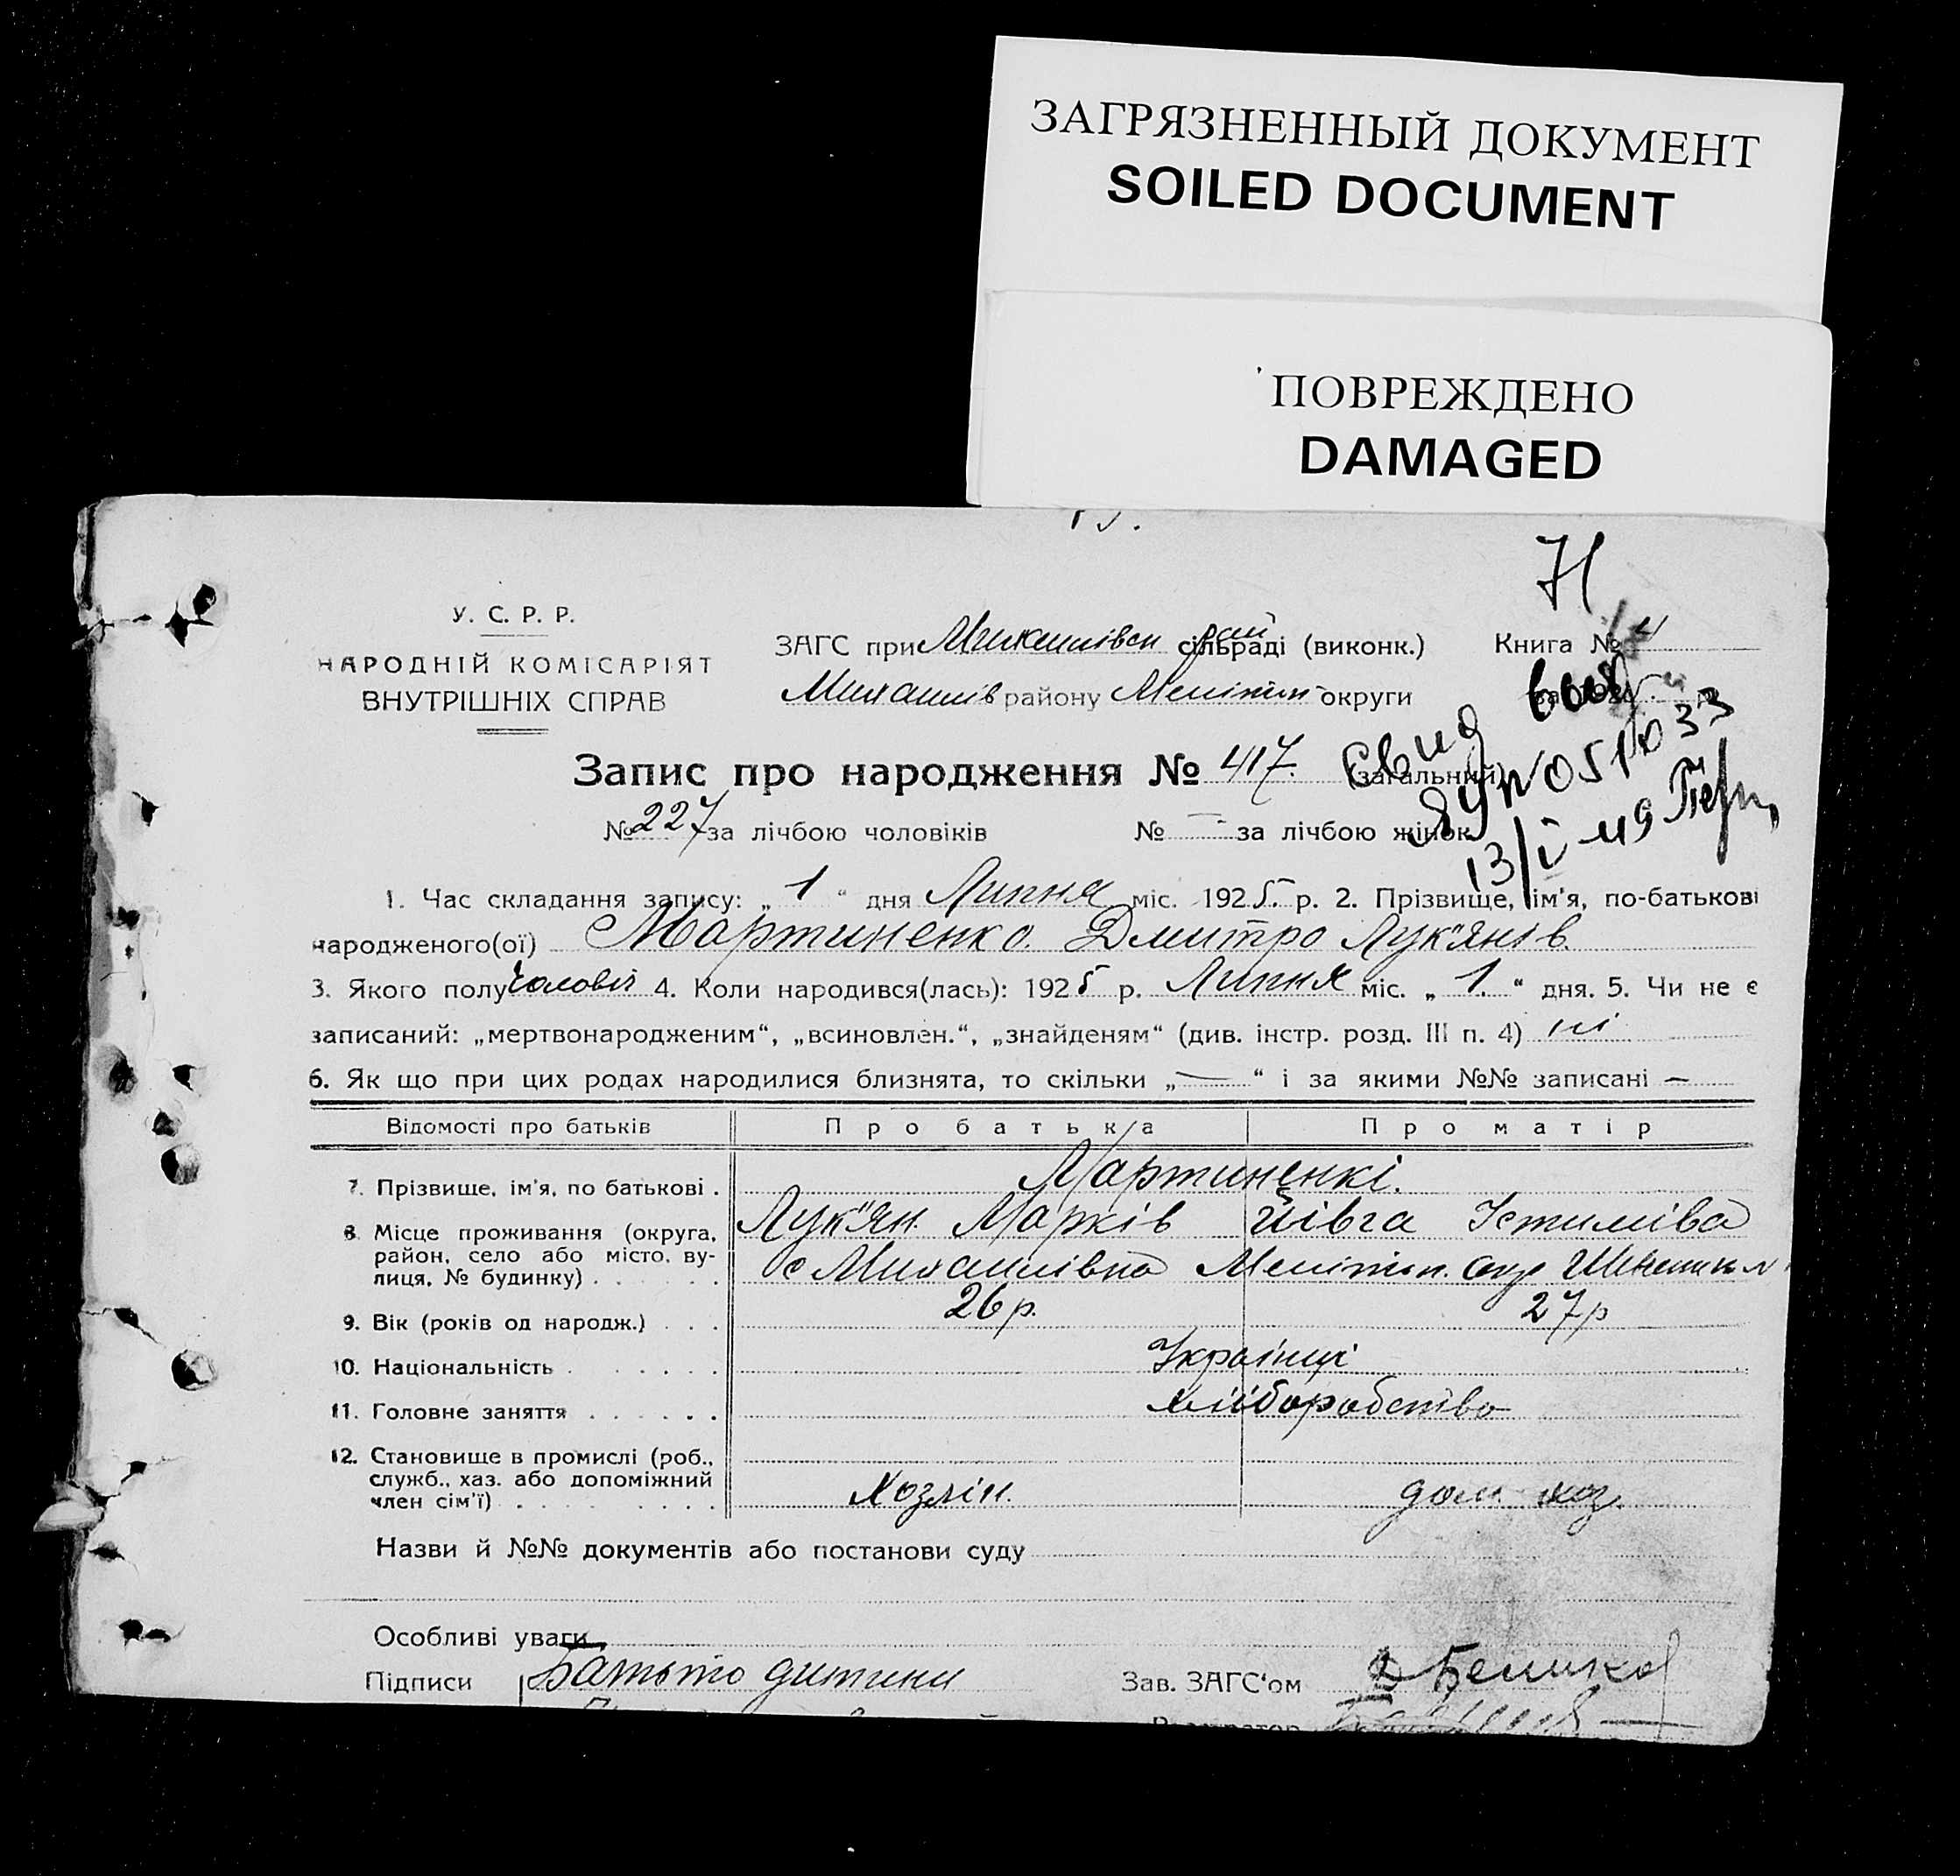 ЗАГРЯЗНЕННЫЙ ДОКУМЕНТ
SOILED DOCUMENT
ПОВРЕЖДЕНО
DAMAGED
71
У. С. Р. Р.
НАРОДНІЙ КОМІСАРІЯТ
ВНУТРІШНІХ СПРАВ
ЗАГС при Михайлівск рай сільраді (виконк.) Книга № 4
Михайлів району Мелітоп округи
Запис про народження № 417. (загальний)
Свид выд
ЯЧ № 051033
13/V-49
№ 227 за лічбою чоловіків № — за лічбою жінок
1. Час складання запису: „ 1 “ дня Липня міс. 1925. р. 2. Прізвище, ім'я, по-батькові
народженого(ої) Мартиненко. Дмитро Лук'янів.
3. Якого полу Чоловіч 4. Коли народився(лась): 1925 р. Липня міс. „ 1. “ дня. 5. Чи не є
записаний: „мертвонародженим“, „всиновлен.“, „знайденям“ (див. інстр. розд. III п. 4) ні
6. Як що при цих родах народилися близнята, то скільки „ — “ і за якими №№ записані —
Відомості про батьків Про батька Про матір
7. Прізвище, ім'я, по батькові . Мартиненкі.
Лук'ян Марків Йівга Устимівна
8. Місце проживання (округа,
район, село або місто, ву-
лиця, № будинку) . . . . . . с Михайлівка Мелітоп. окр
9. Вік (років од народж.) . . . 26 р. 27 р
10. Національність . . . . . Українці
11. Головне заняття . . . . . . хліборобство
12. Становище в промислі (роб.,
служб., хаз. або допоміжний
член сім'ї) . . . . . . . . . Хозяін. дом. хоз.
Назви й №№ документів або постанови суду
Особливі уваги
Підписи Батько дитини Зав. ЗАГС'ом Беликов